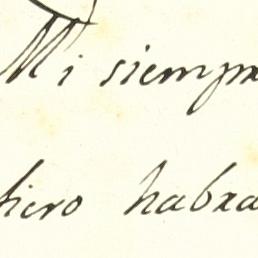 Mi siempre
hiero habra